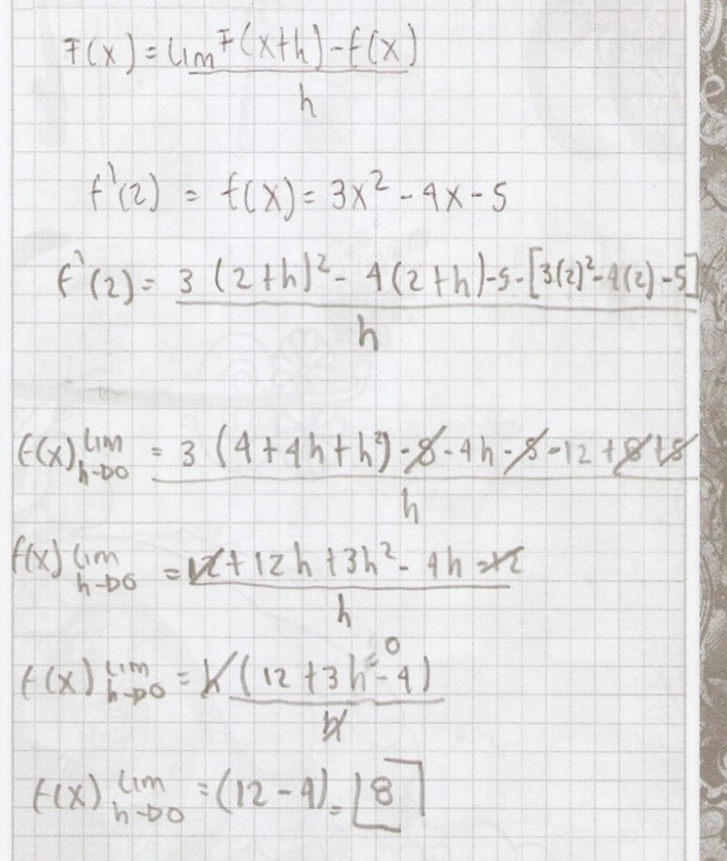 F(x) = lim F(x+h) - f(x)
h
f'(2) = f(x) = 3x² - 4x - 5
f'(2) = 3 (2+h)² - 4(2+h) - 5 - [3(2)² - 4(2) - 5]
h
f(x) lim h→0 = 3 (4 + 4h + h²) - 8 - 4h - 5 - 12 + 8 + 5
h
f(x) lim h→0 = 12 + 12h + 3h² - 4h - 12
h
f(x) lim h→0 = h (12 + 3h = 0 - 4)
h
f(x) lim h→0 = (12 - 4) = 8